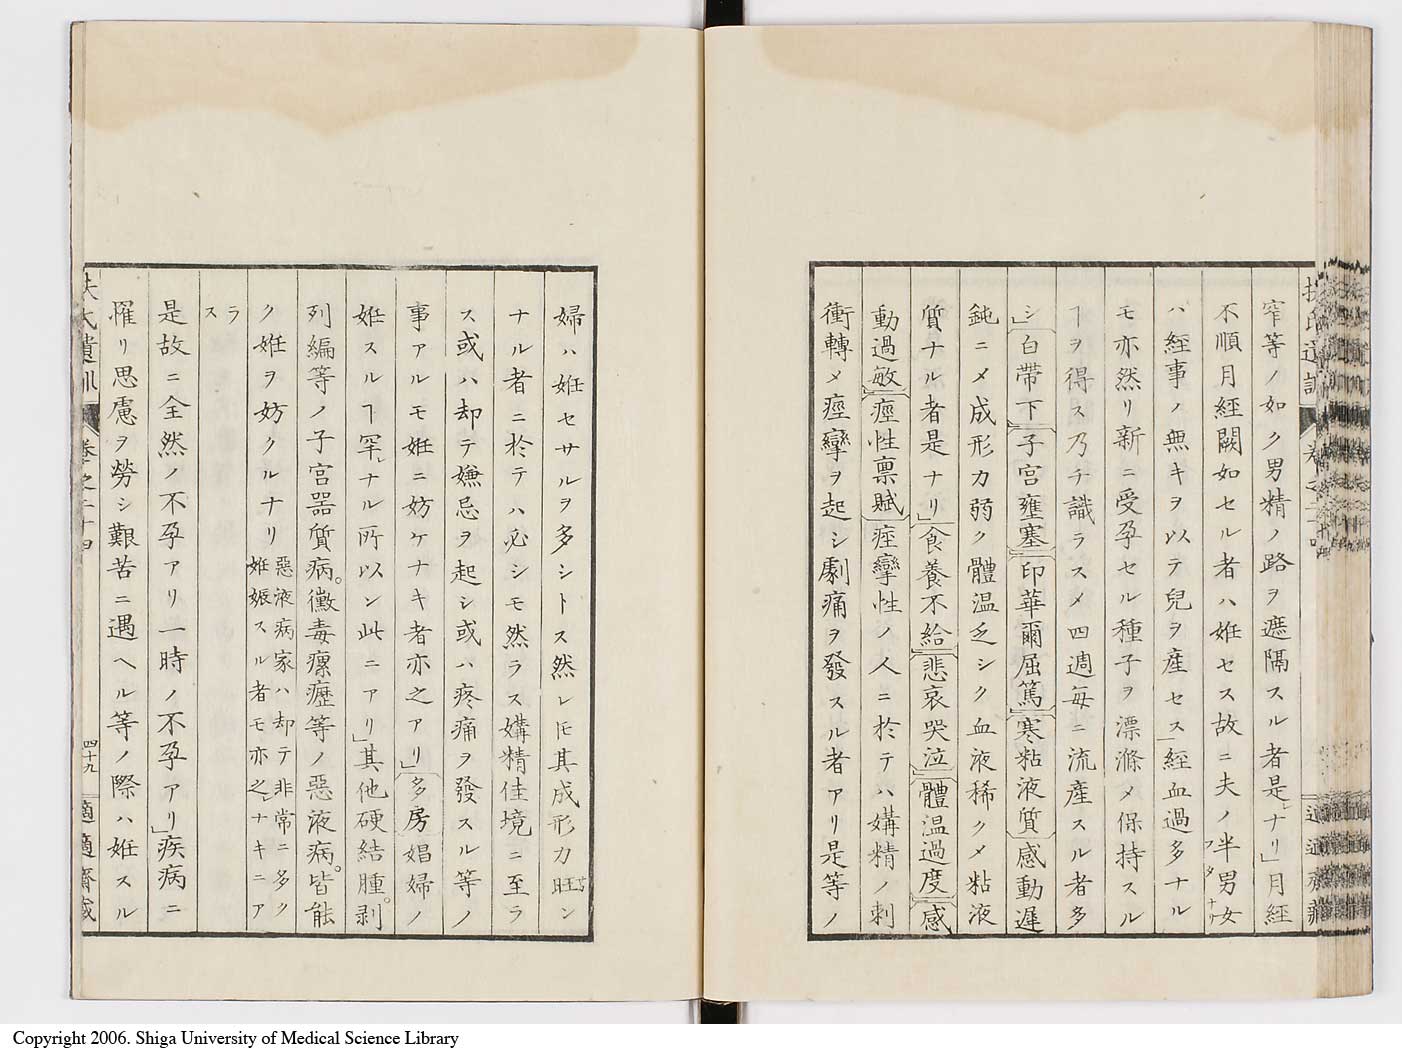 窄等ノ如ク男精ノ路ヲ遮隔スル者是ナリ」月經
不順月經闕如セル者ハ姙セス故ニ夫ノ半男女
ハ經事ノ無キヲ以テ兒ヲ産セス」經血過多ナル
モ亦然リ新ニ受孕セル種子ヲ漂滌メ保持スル
ヿヲ得ス乃チ識ラスメ四週毎ニ流産スル者多
シ」白帶下」子宮壅塞」印華爾屈篤」寒粘液質」感動遲
鈍ニメ成形力弱ク體温乏シク血液稀クメ粘液
質ナル者是ナリ」食養不給」悲哀哭泣」體温過度」感
動過敏」痙性禀賦」痙攣性ノ人ニ於テハ媾精ノ刺
衝轉メ痙攣ヲ起シ劇痛ヲ發スル者アリ是等ノ
婦ハ姙セサルヲ多シトス然レ𪜈其成形力旺ン
ナル者ニ於テハ必シモ然ラス媾精佳境ニ至ラ
ス或ハ却テ嫌忌ヲ起シ或ハ疼痛ヲ發スル等ノ
事アルモ姙ニ妨ケナキ者亦之アリ」多房娼婦ノ
姙スルヿ罕ナル所以ン此ニアリ」其他硬結腫。剥
列編等ノ子宮器質病。黴毒瘰癧等ノ惡液病。皆能
ク姙ヲ妨クルナリ 惡液病家ハ却テ非常ニ多ク
姙娠スル者モ亦之ナキニア
ラス
是故ニ全然ノ不孕アリ一時ノ不孕アリ」疾病ニ
罹リ思慮ヲ勞シ艱苦ニ遇ヘル等ノ際ハ姙スル
扶氏遺訓 卷之二十四 四十九 適適齋藏
Copyright 2006. Shiga University of Medical Science Library